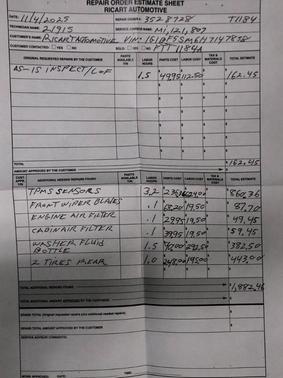 REPAIR ORDER ESTIMATE SHEET
RICART AUTOMOTIVE
DATE: 11/4/2025 REPAIR ORDER #: 3528728 T1184
TECHNICIAN NAME: 21915 MI, 121,807
CUSTOMER'S NAME: RICART AUTOMOTIVE VIN:
CUSTOMER CONTACTED: YES NO SOLD: YES NO PTT 1184A
ORIGINAL REQUESTED REPAIRS BY THE CUSTOMER PARTS AVAILABLE Y/N LABOR HOURS PARTS COST LABOR COST TAX & MATERIALS COST TOTAL ESTIMATE
AS-IS INSPECT/LOF 1.5 49.95 112.50 $ 162.45
TOTAL $162.45
AMOUNT APPROVED BY THE CUSTOMER
ADDITIONAL NEEDED REPAIRS FOUND PARTS AVAILABLE Y/N LABOR HOURS PARTS COST LABOR COST TAX & MATERIALS COST TOTAL ESTIMATE
TPMS SENSORS 3.2 $ 860.36
FRONT WIPER BLADES .1 68.20 19.50 $ 87.70
ENGINE AIR FILTER .1 29.95 19.50 $ 49.45
CABIN AIR FILTER .1 39.95 19.50 $ 59.45
WASHER FLUID BOTTLE 1.5 90.00 292.50 $ 382.50
2 TIRES REAR 1.0 248.00 195.00 $ 443.00
TOTAL ADDITIONAL REPAIRS FOUND $1,882.46
TOTAL ADDITIONAL AMOUNT APPROVED BY THE CUSTOMER
GRAND TOTAL
GRAND TOTAL AMOUNT APPROVED BY THE CUSTOMER
SERVICE ADVISOR COMMENTS:
DATE TIME: